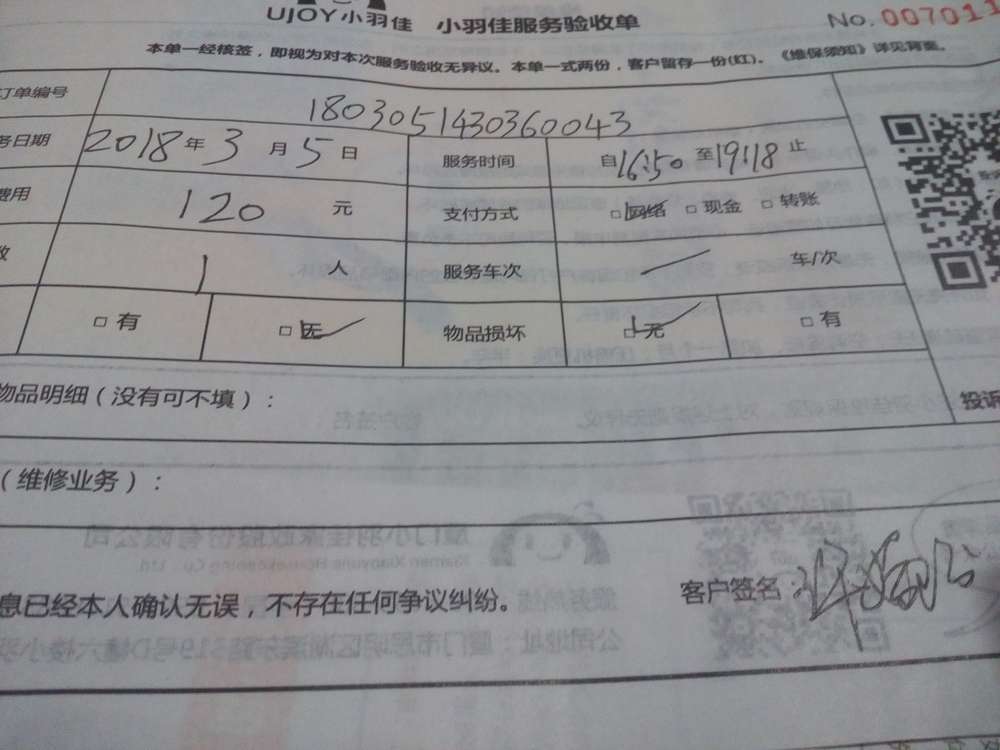 UJOY小羽佳 小羽佳服务验收单 No. 007011
本单一经核签，即视为对本次服务验收无异议。本单一式两份，客户留存一份(红)。《维保须知》详见背面。
订单编号 1803051430360043
务日期 2018年3月5日 服务时间 自16:50至19:18止
费用 120元 支付方式 □网络 □现金 □转账
数 1人 服务车次 车/次
□有 □无 物品损坏 □无 □有
物品明细（没有可不填）：
投诉
（维修业务）：
息已经本人确认无误，不存在任何争议纠纷。 客户签名：